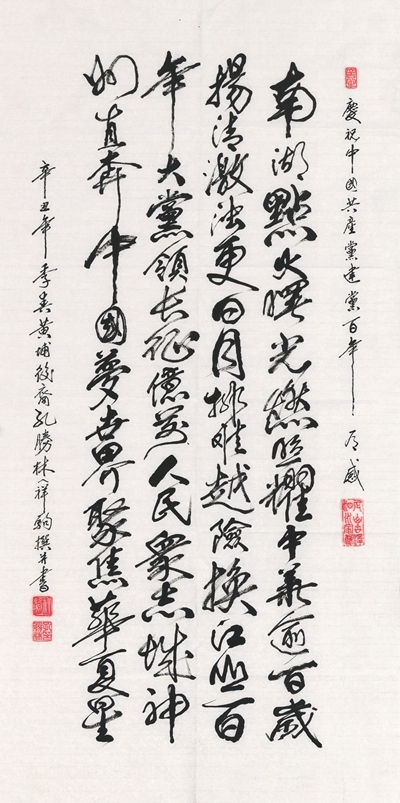 慶祝中國共產黨建黨百年——有感
南湖點火曙光燃照耀中華逾百歲
揚清激浊更日月排难越險換江山百
年大黨領長征億萬人民衆志城神
州直奔中國夢世界聚焦華夏星
辛丑年季春黃埔後裔孔勝林祥撰并書